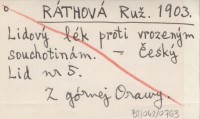 RÁTHOVÁ Ruž. 1903.
Lidový lék proti vrozeným
souchotinám. – Český
Lid nr 5.
Z górnej Orawy.